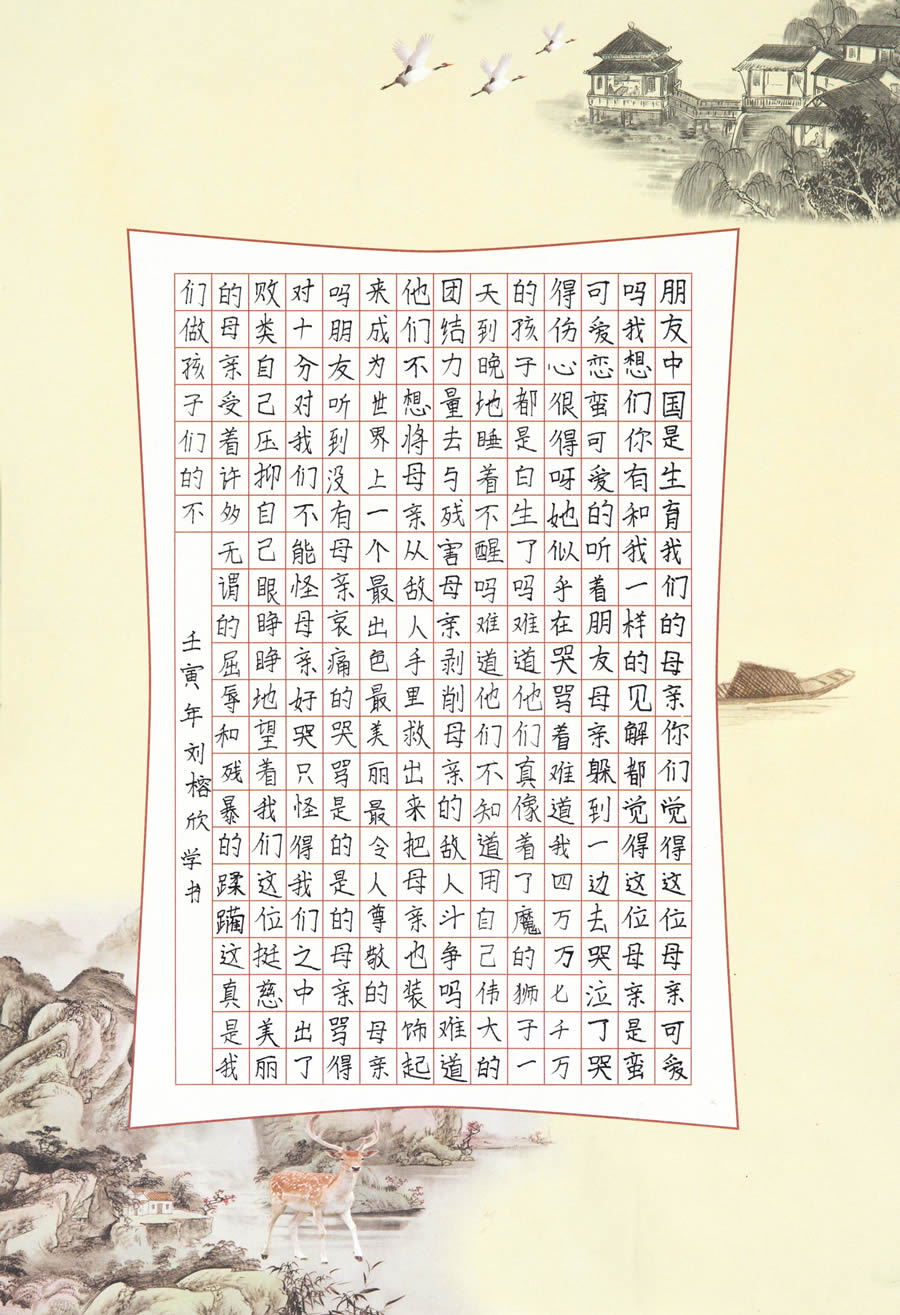 朋友中国是生育我们的母亲你们觉得这位母亲可爱
吗我想们你有和我一样的见解都觉得这位母亲是蛮
可爱恋蛮可爱的听着朋友母亲躲到一边去哭泣了哭
得伤心很得呀她似乎在哭骂着难道我四万万七千万
的孩子都是白生了吗难道他们真像着了魔的狮子一
天到晚地睡着不醒吗难道他们不知道用自己伟大的
团结力量去与残害母亲剥削母亲的敌人斗争吗难道
他们不想将母亲从敌人手里救出来把母亲也装饰起
来成为世界上一个最出色最美丽最令人尊敬的母亲
吗朋友听到没有母亲哀痛的哭骂是的是的母亲骂得
对十分对我们不能怪母亲好哭只怪得我们之中出了
败类自己压抑自己眼睁睁地望着我们这位挺慈美丽
的母亲受着许多无谓的屈辱和残暴的蹂躏这真是我
们做孩子们的不
壬寅年刘榕欣学书